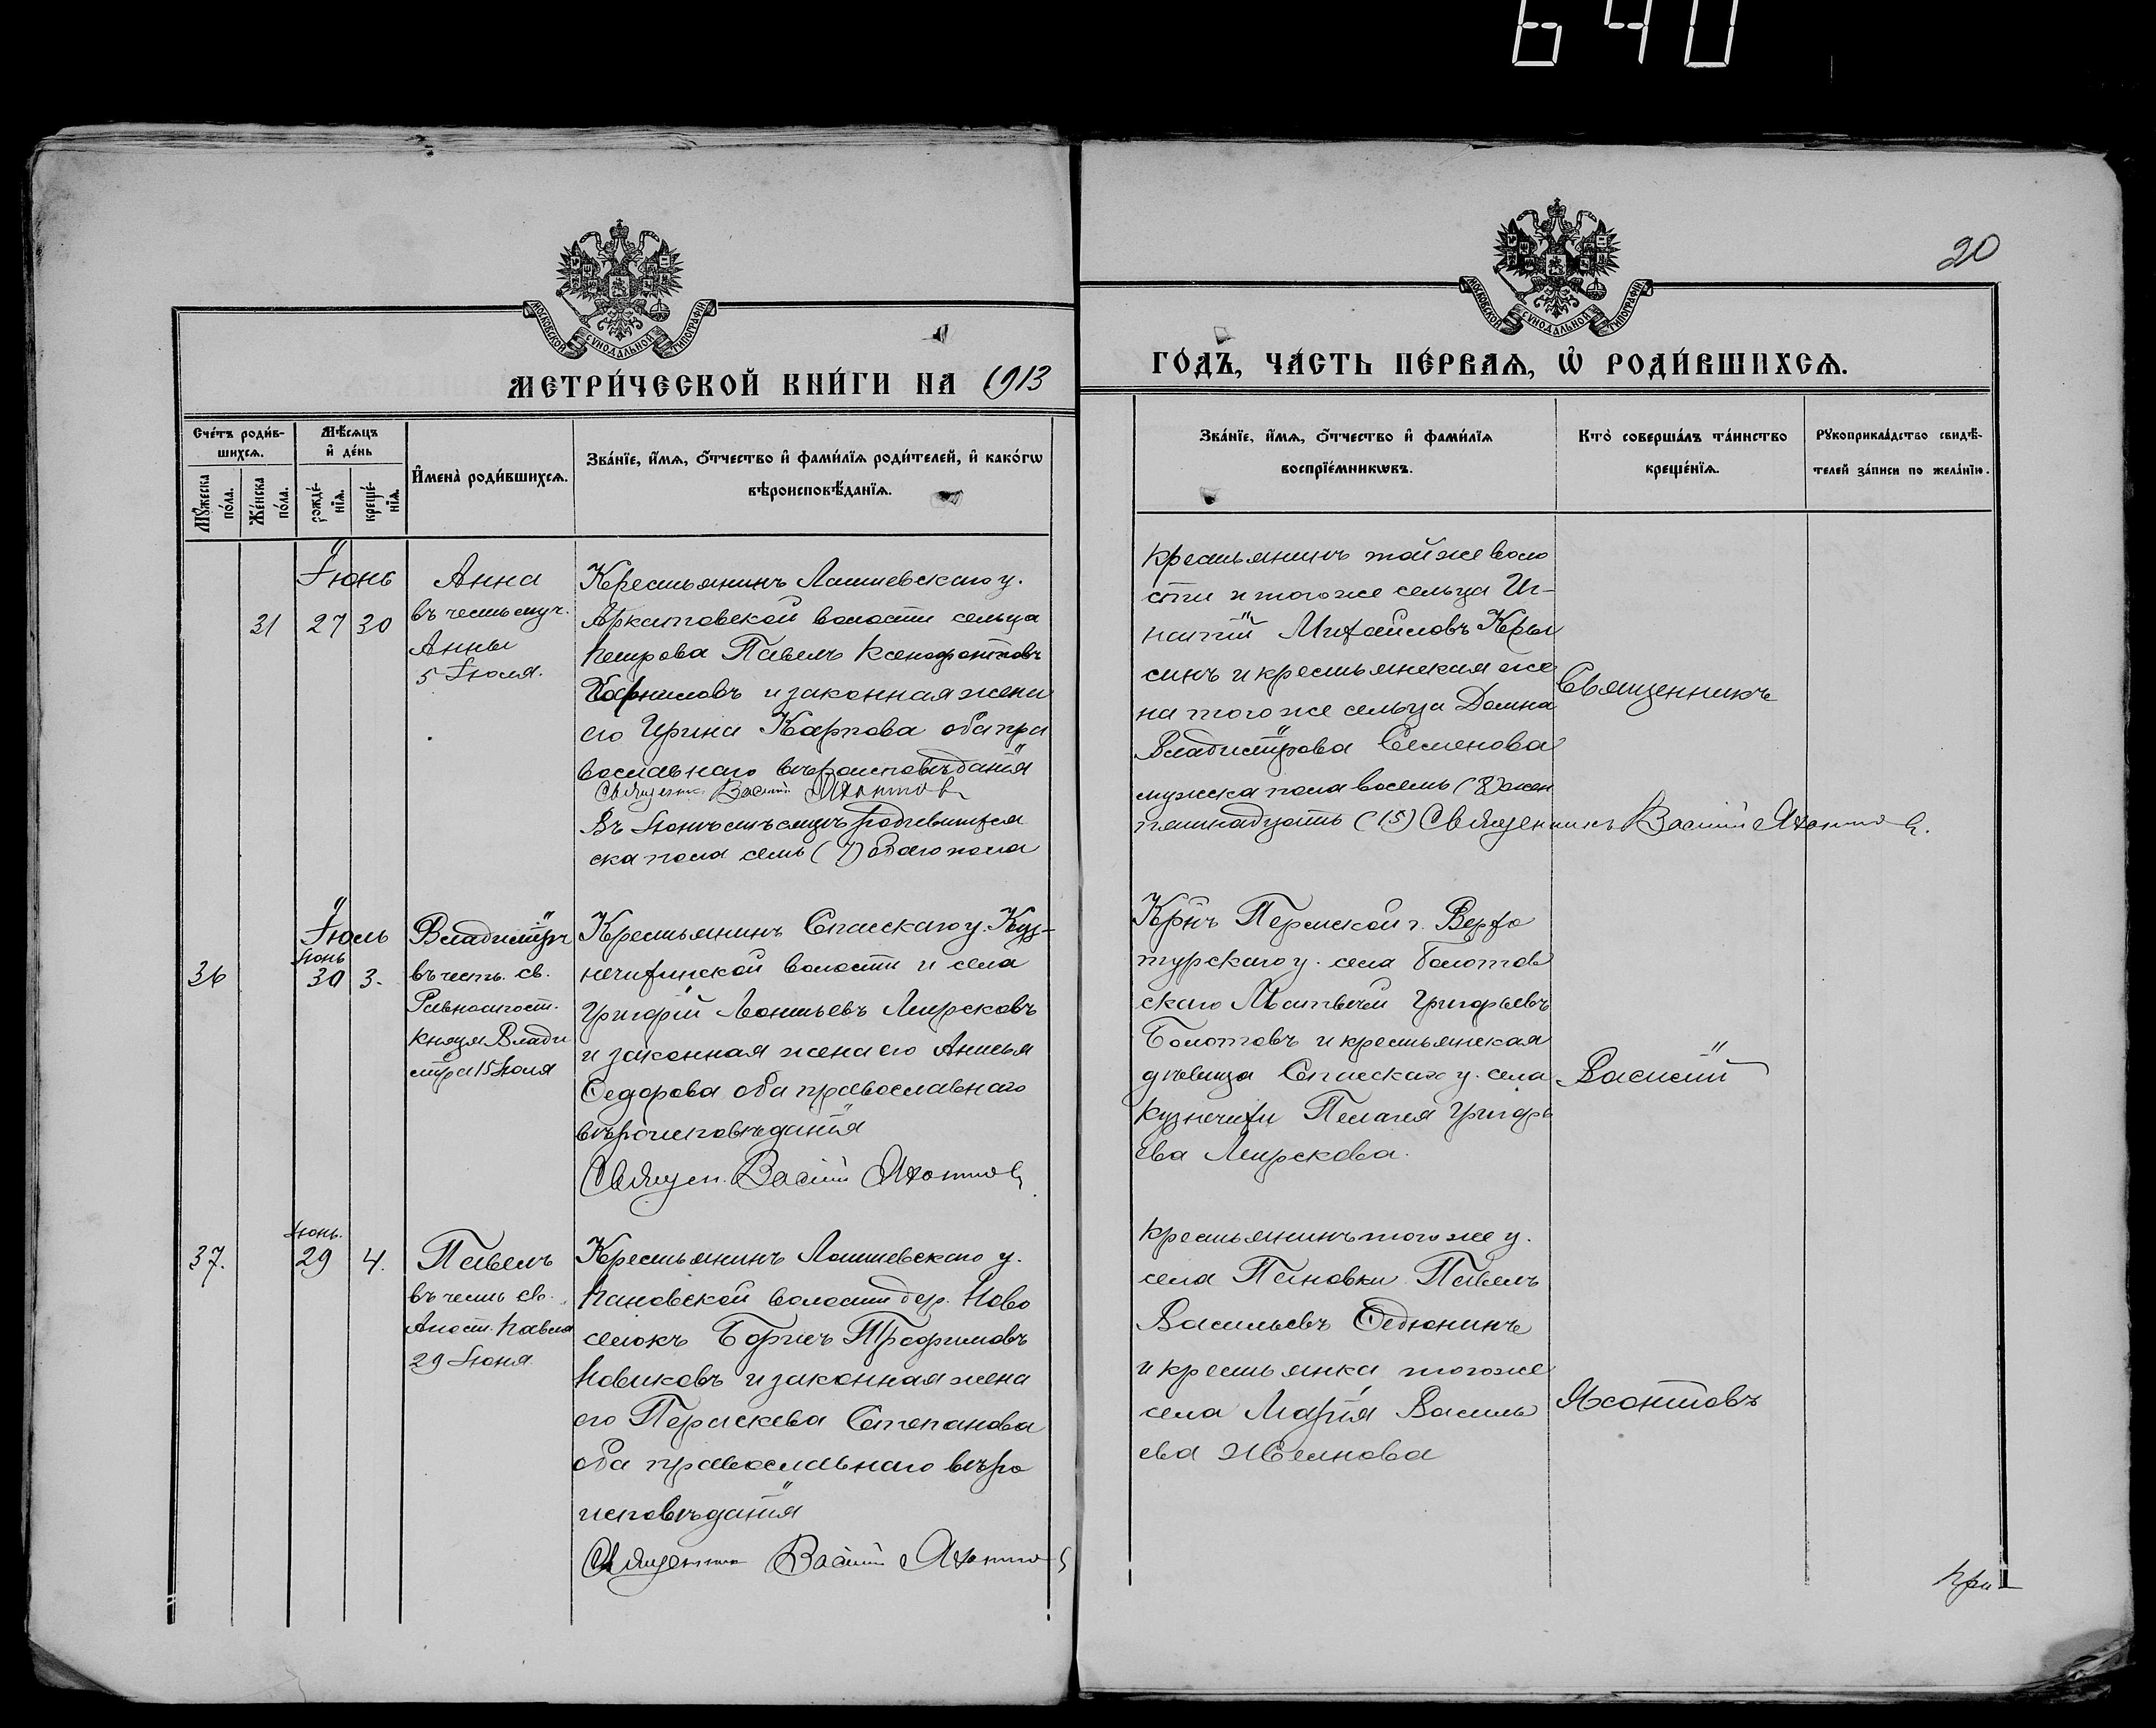 640
20
МОСКОВСКОЙ СѴНОДАЛЬНОЙ ТИПОГРАФІИ
МОСКОВСКОЙ СѴНОДАЛЬНОЙ ТИПОГРАФІИ
МЕТРИ́ЧЕСКОЙ КНИ́ГИ НА 1913
ГО́ДЪ, ЧА́СТЬ ПЕ́РВАѦ, Ѡ҆ РОДИ́ВШИХСѦ.
Сче́тъ роди́в-
шихсѧ.
Мꙋ́жеска по́ла.
Же́нска по́ла.
Мѣ́сѧцъ и҆ де́нь
рожде́-нїѧ.
креще́-нїѧ.
И҆мена̀ роди́вшихсѧ.
Зва́нїе, и҆́мѧ, ѻ҆́тчество и҆ фами́лїѧ роди́телей, и҆ како́гѡ
вѣроисповѣ́данїѧ.
Зва́нїе, и҆́мѧ, ѻ҆́тчество и҆ фами́лїѧ
воспрїе́мникѡвъ.
Кто̀ соверша́лъ та́инство
креще́нїѧ.
Рꙋкоприкла́дство свидѣ́-
телей за́писи по жела́нїю.
Іюнь
31 27 30
Анна
въ честь муч.
Анны
5 Іюля.
Крестьянинъ Лаишевскаго у.
волости сельца
Петрова Павелъ Ксенофонтовъ
и законная жена
его Ирина Карпова оба пра
вославнаго вѣроисповѣданія
Священникъ Василій Яхонтовъ
Въ Іюнѣ мѣсяцѣ
ска пола семь (7) обоего пола
крестьянинъ той же воло
сти и того же сельца Иг-
натій Михайловъ
синъ и крестьянская же
на того же сельца Домна
Владимірова Семенова
мужска пола восемь (8) жен
пятнадцать (15) Священникъ Василій Яхонтовъ.
Священникъ
Іюль
Іюнь
36 30 3.
Владиміръ
въ честь св.
Равноапост.
Князя Влади
міра 15 Іюля
Крестьянинъ Спасскаго у. Куз-
нечихинской волости и села
Григорій Леонтьевъ Мирсковъ
и законная жена его Анисья
Ѳедорова оба православнаго
вѣроисповѣданія
Священ. Василій Яхонтовъ
Кр҃нъ Пермской г. Верхо
турскаго у. села Болотов
скаго Матвѣй Григорьевъ
Болотовъ и крестьянская
дѣвица Спасскаго у. села
Кузнечихи Пелагея Григорь
ева Мирскова.
Василій
Іюнь.
37. 29 4.
Павелъ
въ честь св.
Апост. Павла
29 Іюня.
Крестьянинъ Лаишевскаго у.
Пановской волости дер. Ново
селокъ Борисъ Трофимовъ
Новиковъ и законная жена
его Параскева Степанова
оба православнаго вѣро
исповѣданія
Священникъ Василій Яхонтовъ
крестьянинъ того же у.
села Пановки Павелъ
Васильевъ Ѳедюнинъ
и крестьянка того же
села Марія Василь
ева
Яхонтовъ
При-